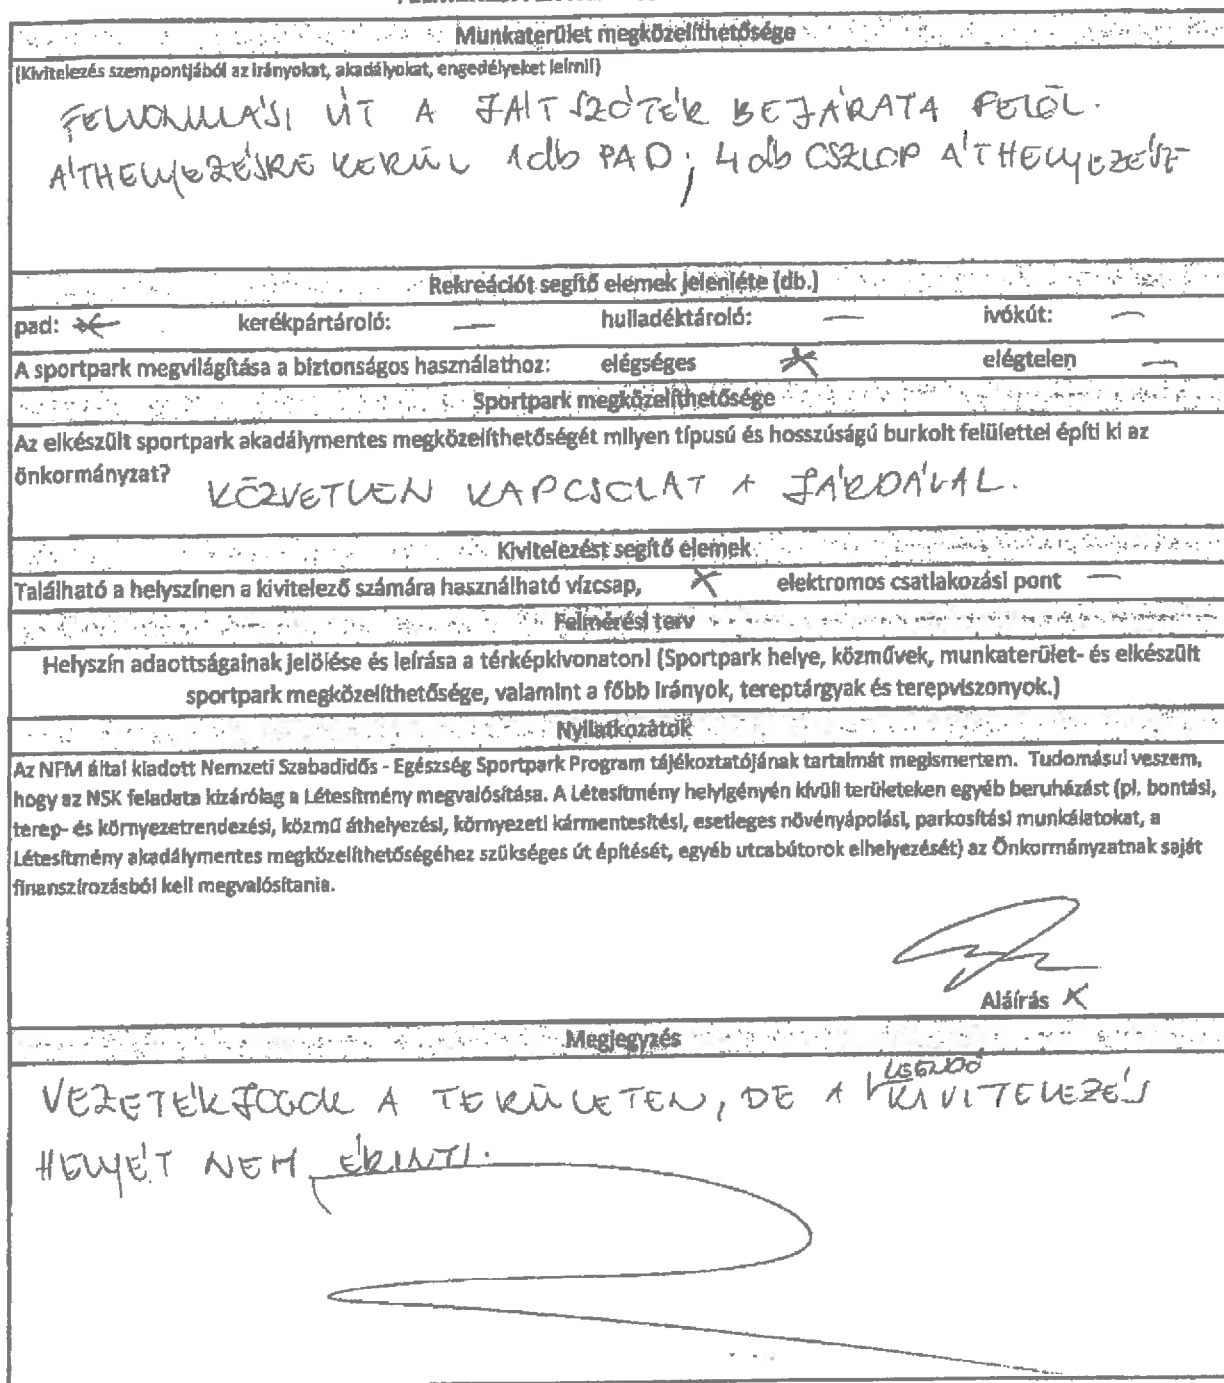 Munkaterület megközelíthetősége
(Kivitelezés szempontjából az irányokat, akadályokat, engedélyeket leírni!)
FELVONULÁSI ÚT A JÁTSZÓTÉR BEJÁRATA FELŐL.
ÁTHELYEZÉSRE KERÜL 1db PAD; 4db OSZLOP ÁTHELYEZÉSE
Rekreációt segítő elemek jelenléte (db.)
pad: kerékpártároló: — hulladéktároló: — ivókút: —
A sportpark megvilágítása a biztonságos használathoz: elégséges X elégtelen —
Sportpark megközelíthetősége
Az elkészült sportpark akadálymentes megközelíthetőségét milyen típusú és hosszúságú burkolt felülettel építi ki az
önkormányzat?
KÖZVETLEN KAPCSOLAT A JÁRDÁVAL.
Kivitelezést segítő elemek
Található a helyszínen a kivitelező számára használható vízcsap, X elektromos csatlakozási pont —
Felmérési terv
Helyszín adaottságainak jelölése és leírása a térképkivonaton! (Sportpark helye, közművek, munkaterület- és elkészült
sportpark megközelíthetősége, valamint a főbb irányok, tereptárgyak és terepviszonyok.)
Nyilatkozatok
Az NFM által kiadott Nemzeti Szabadidős - Egészség Sportpark Program tájékoztatójának tartalmát megismertem. Tudomásul veszem,
hogy az NSK feladata kizárólag a Létesítmény megvalósítása. A Létesítmény helyigényén kívüli területeken egyéb beruházást (pl. bontási,
terep- és környezetrendezési, közmű áthelyezési, környezeti kármentesítési, esetleges növényápolási, parkosítási munkálatokat, a
Létesítmény akadálymentes megközelíthetőségéhez szükséges út építését, egyéb utcabútorok elhelyezését) az Önkormányzatnak saját
finanszírozásból kell megvalósítania.
Aláírás X
Megjegyzés
VEZETÉKJOGOK A TERÜLETEN, DE A LESENDŐ KIVITELEZÉS
HELYÉT NEM ÉRINTI.